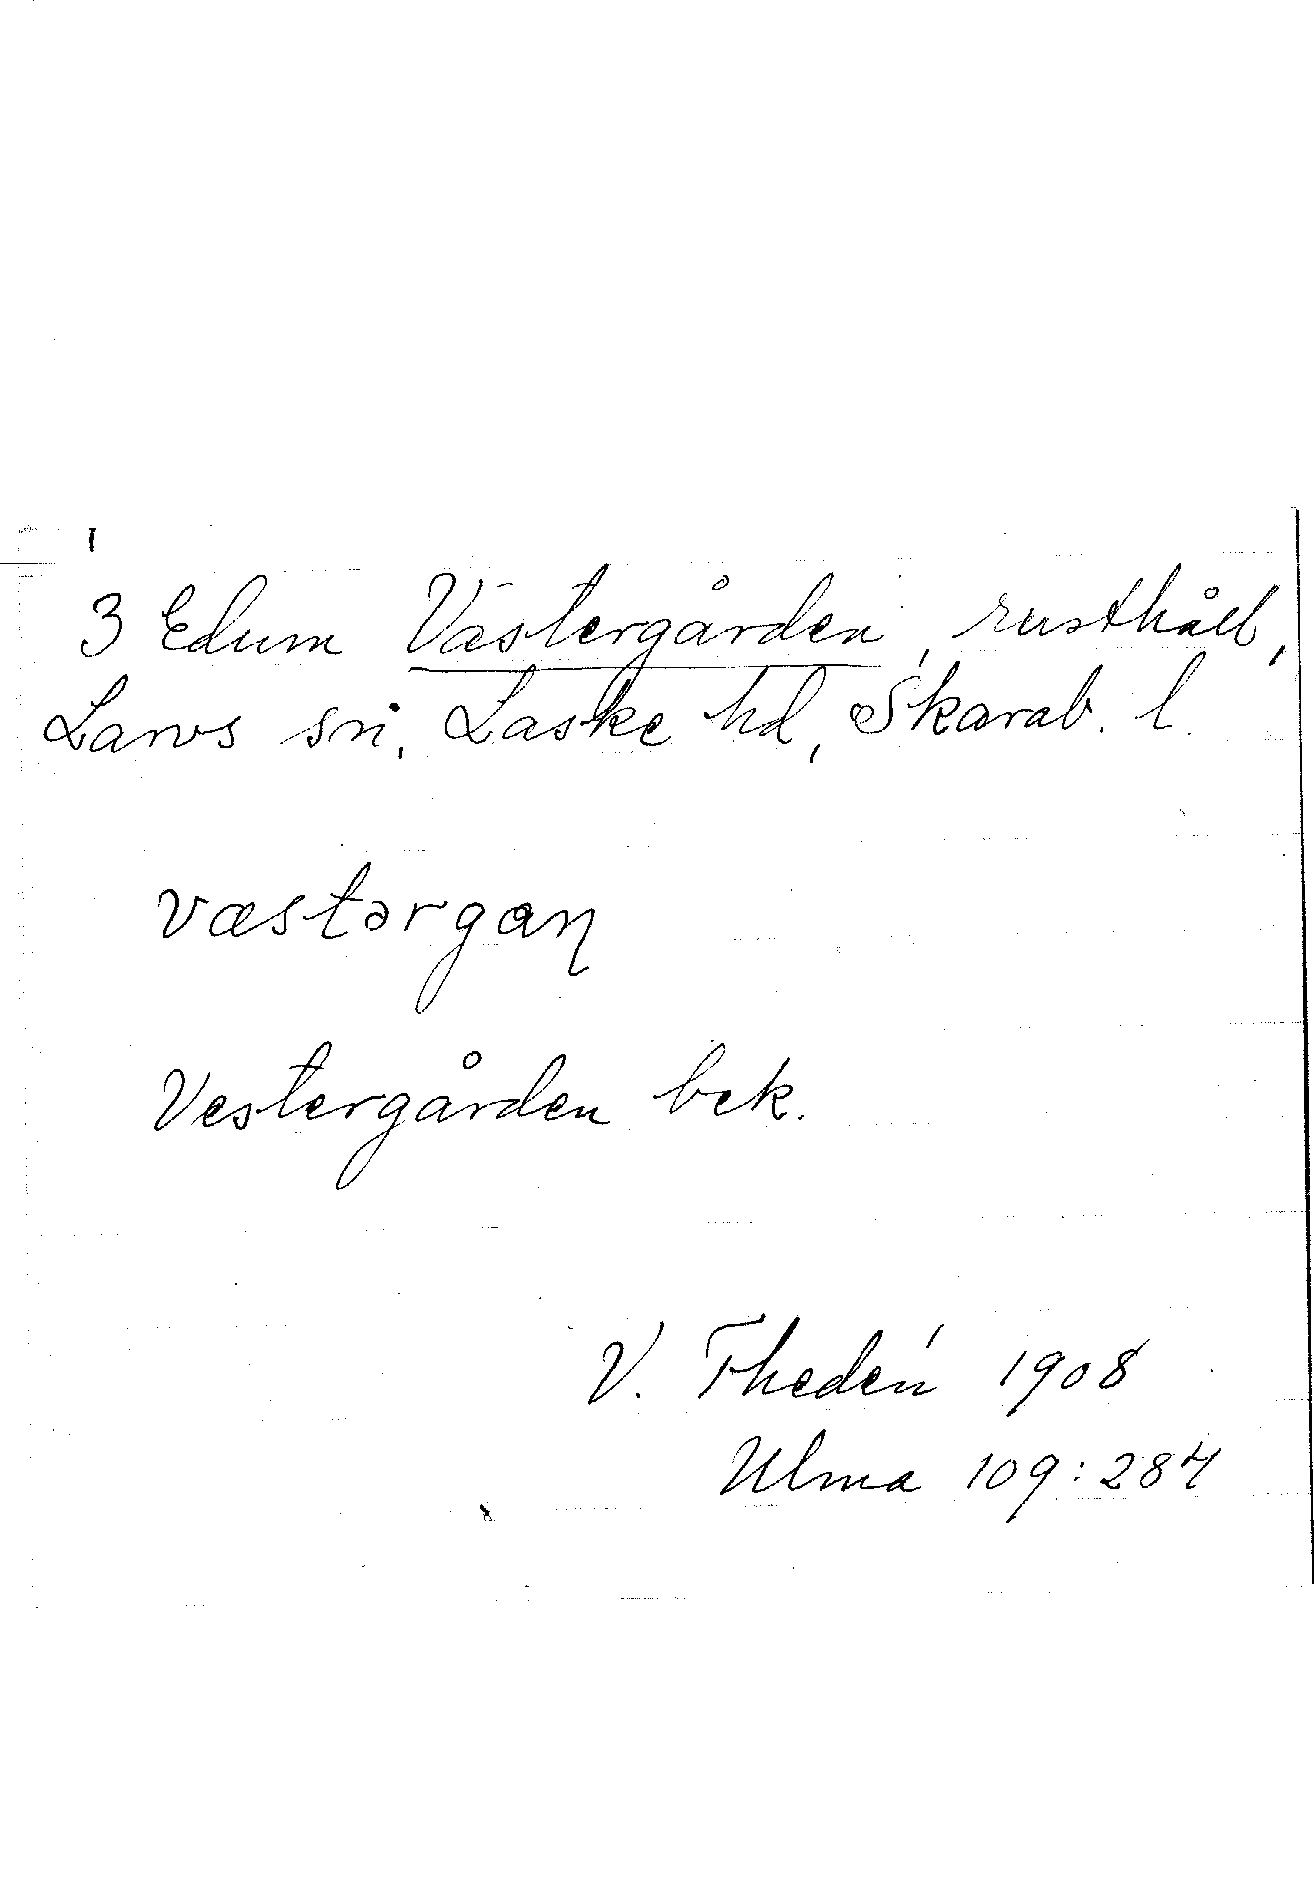 3 Edum Västergården, rusthåll,
Larvs sn, Laske hd, Skarab. l.
væstərgaɳ
Vestergården bek.
V. Thedén 1908
Ulma 109:284